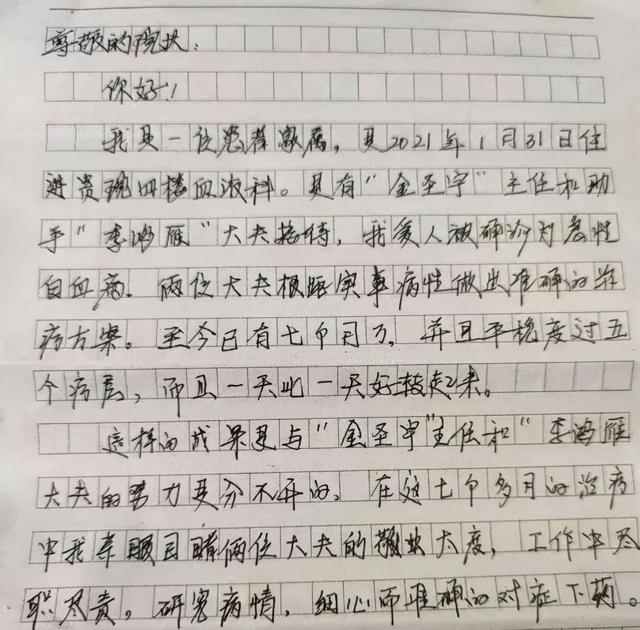 尊敬的院长：
你好！
我是一位患者家属，是2021年1月31日住
进贵院四楼血液科。是有“金圣宇”主任和助
手“李鸿雁”大夫接待，我爱人被确诊为急性
白血病．两位大夫根据实事病性做出准确的治
疗方案。至今已有七个月了，并且平稳度过五
个疗层，而且一天比一天好转起来。
这样的成果是与“金圣宇”主任和“李鸿雁
大夫的努力是分不开的，在这七个多月的治疗
中我亲眼目睹俩位大夫的敬业太度，工作中尽
职尽责。研究病情，细心而准确的对症下药。